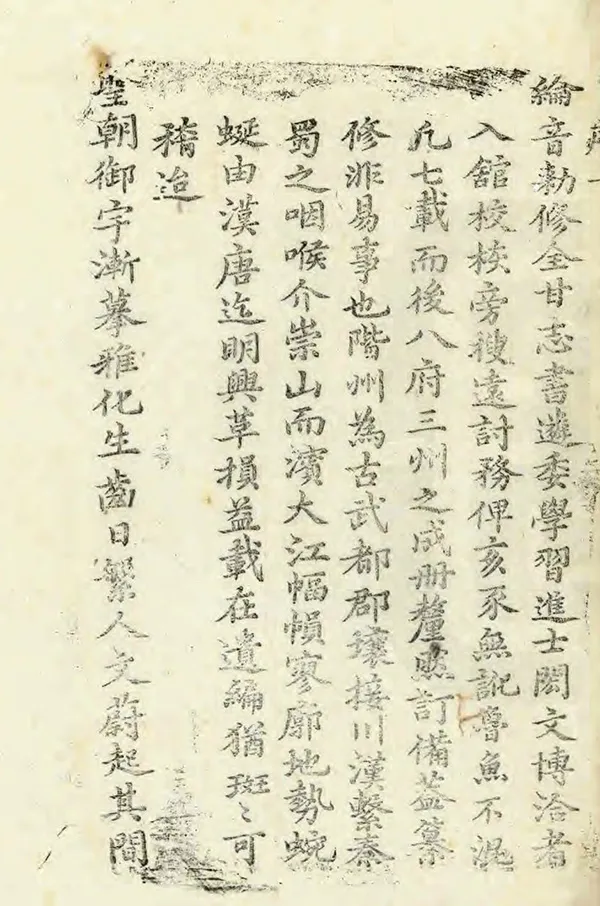 綸音勅修全甘志書遴委學習進士閎文博洽者
入舘校核旁搜遠討務俾亥豕無訛魯魚不混
凡七載而後八府三州之成册釐然訂備葢纂
修非易事也階州為古武都郡壤接川漢繫秦
蜀之咽喉介崇山而濱大江幅幀寥廓地勢蜿
蜒由漢唐迄明興草損益載在遺編猶斑〻可
稽迨
聖朝御宇漸摹雅化生齒日繁人文蔚起其間